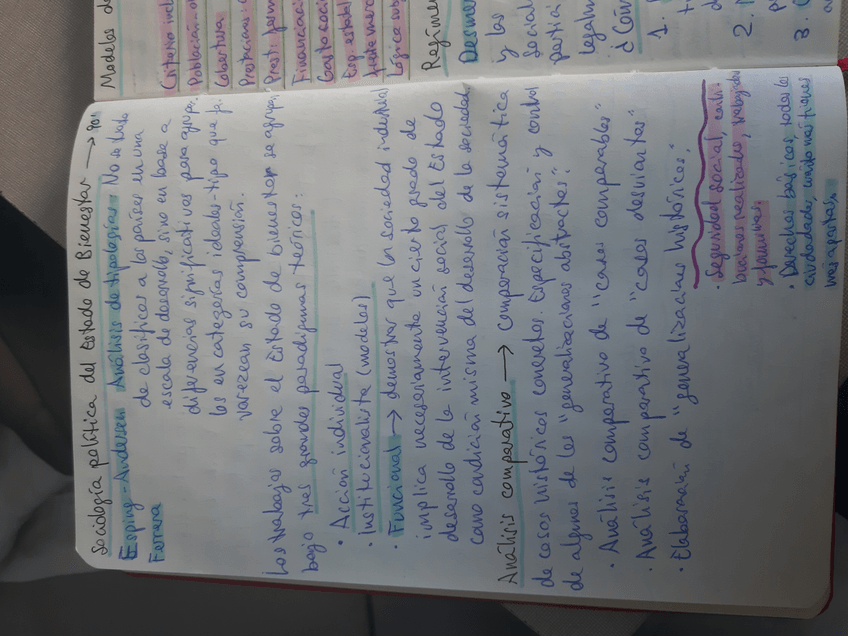 Sociología política del Estado de Bienestar →
Esping-Andersen Análisis de tipologías: No se trata
Ferrera
de clasificar a los países en una
escala de desarrollo, sino en base a
diferencias significativas para agrupar
les en categorías ideales-tipo que fa-
vorezcan su comprensión.
Los trabajos sobre el Estado de bienestar se agrupan
bajo tres grandes paradigmas teóricos:
• Acción individual
• Institucionalista (modelos)
• Funcional → demostrar que la sociedad industrial
implica necesariamente un cierto grado de
desarrollo de la intervención social del Estado
como condición misma del desarrollo de la sociedad
Análisis comparativo → comparación sistemática
de casos históricos concretos. Especificación y control
de algunos de los "generalizaciones abstractas":
• Análisis comparativo de "casos comparables"
• Análisis comparativo de "casos desviantes"
• Elaboración de "generalizaciones históricas".
• Seguridad social,
realizado,
y familias.
• Derechos básicos, todos los
ciudadanos, cuánto más tienes
más aportas.
Modelos de
Criterio
Población
Cobertura
Prestaciones
Prest.
Financiación
Gasto social
Esp.
Lógica
Regímen
Desmer
y los
social
partic
legalm
¿Cóm
1.
2.
3.